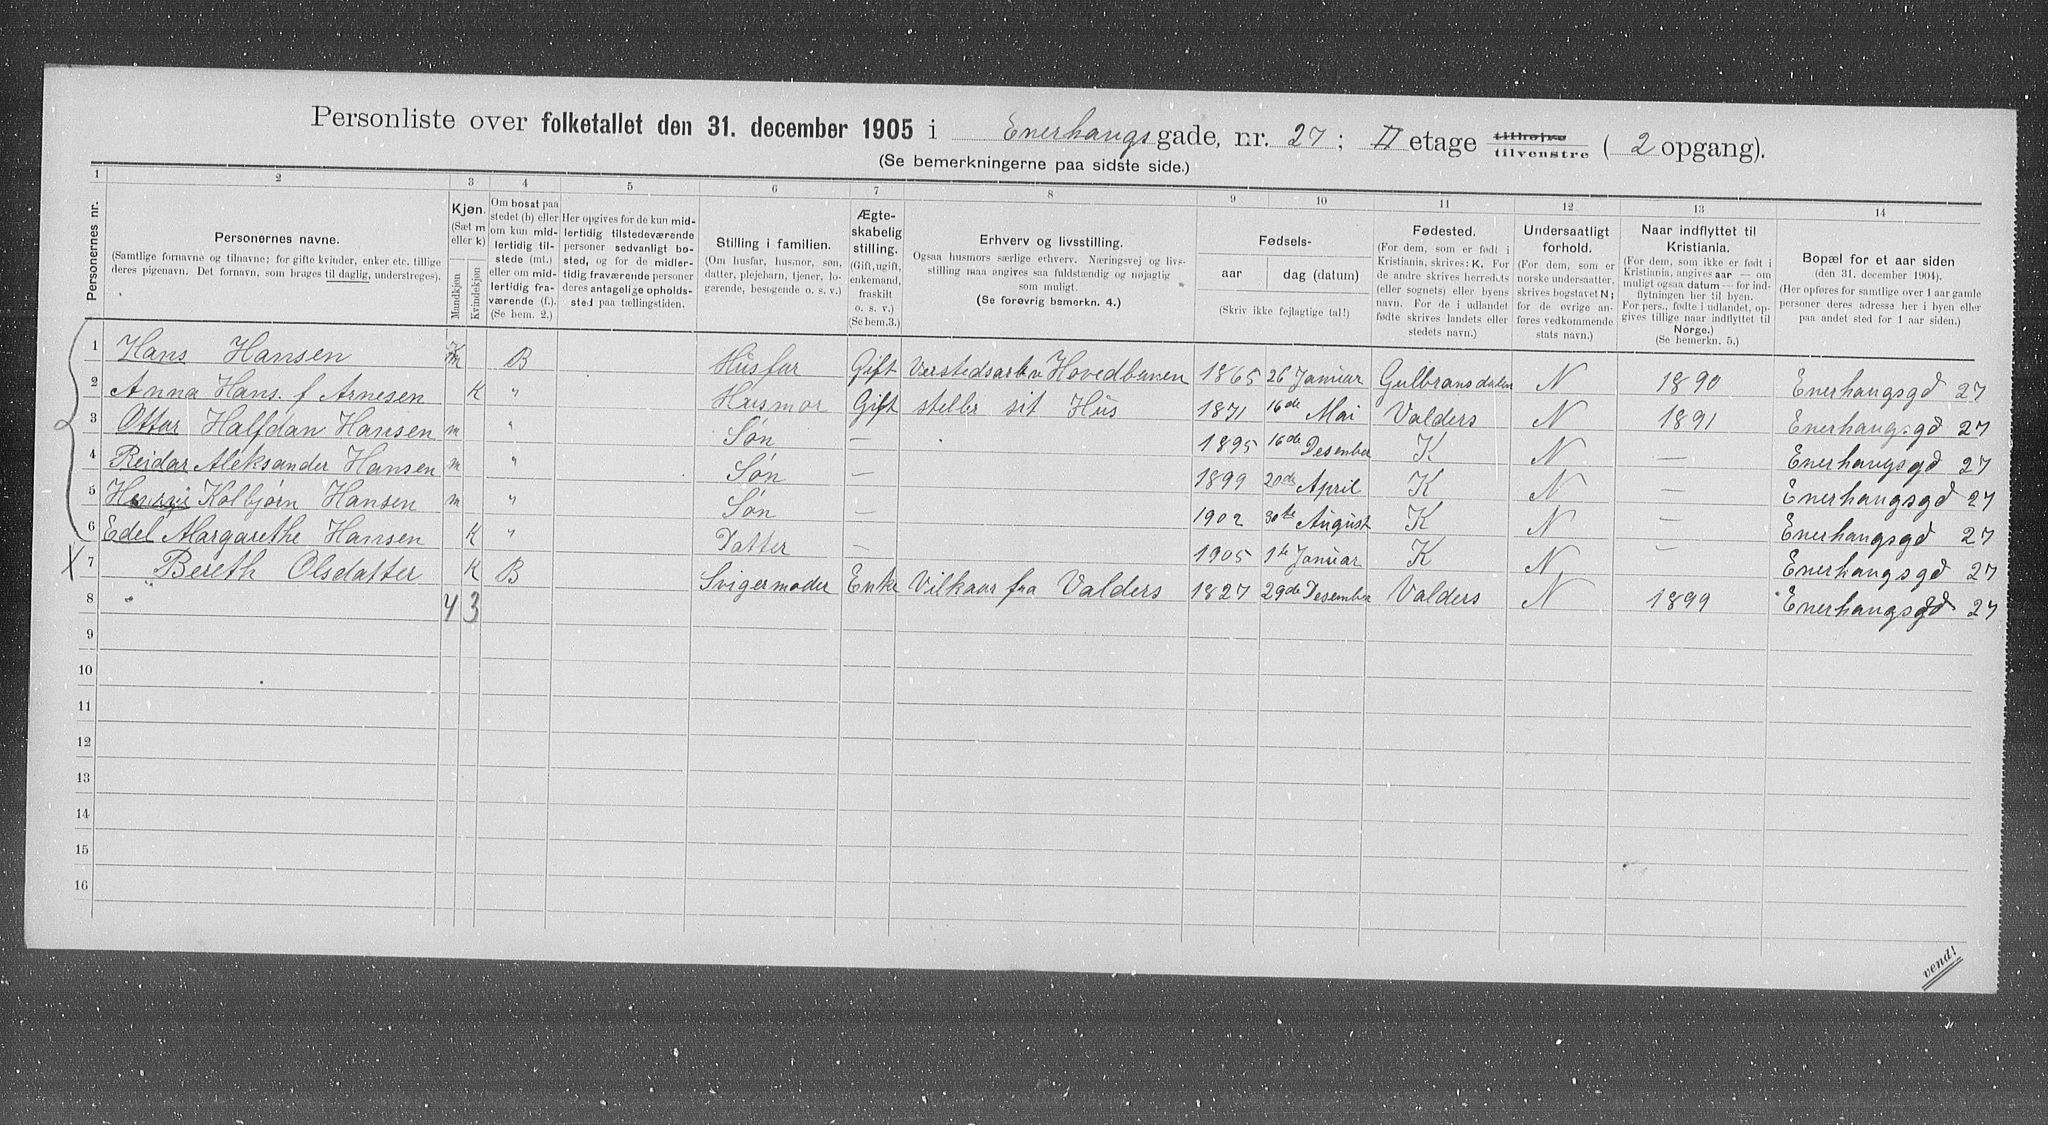 Personliste over folketallet den 31. december 1905 i Enerhaugsgade, nr. 27; II etage tilhøjre tilvenstre (2 opgang).
(Se bemerkningerne paa sidste side.)
1 2 3 4 5 6 7 8 9 10 11 12 13 14
Personernes nr.
Personernes navne.
(Samtlige fornavne og tilnavne; for gifte kvinder, enker etc. tillige
deres pigenavn. Det fornavn, som bruges til daglig, understreges).
Kjøn.
(Sæt m
eller k)
Mandkjøn
Kvindekjøn
Om bosat paa
stedet (b) eller
om kun mid-
lertidig til-
stede (mt.)
eller om mid-
lertidig fra-
værende (f.).
(Se bem. 2.)
Her opgives for de kun mid-
lertidig tilstedeværende
personer sedvanligt bo-
sted, og for de midler-
tidig fraværende personer
deres antagelige opholds-
sted paa tællingstiden.
Stilling i familien.
(Om husfar, husmor, søn,
datter, plejebarn, tjener, lo-
gerende, besøgende o. s. v.)
Ægte-
skabelig
stilling.
(Gift, ugift,
enkemand,
fraskilt
o. s. v.)
(Se bem.3.)
Erhverv og livsstilling.
Ogsaa husmors særlige erhverv. Næringsvej og livs-
stilling maa angives saa fuldstændig og nøjagtig
som muligt.
(Se forøvrig bemerkn. 4.)
Fødsels-
aar dag (datum)
(Skriv ikke fejlagtige tal!)
Fødested.
(For dem, som er født i
Kristiania, skrives: K. For
de andre skrives herredets
(eller sognets) eller byens
navn. For de i udlandet
fødte skrives landets eller
stedets navn.)
Undersaatligt
forhold.
(For dem, som er
norske undersaatter,
skrives bogstavet N;
for de øvrige an-
føres vedkommende
stats navn.)
Naar indflyttet til
Kristiania.
(For dem, som ikke er født i
Kristiania, angives aar — om
muligt ogsaa datum — for ind-
flytningen her til byen.
For pers., fødte i udlandet, op-
gives tillige naar indflyttet til
Norge.)
(Se bemerkn. 5.)
Bopæl for et aar siden
(den 31. december 1904).
(Her opføres for samtlige over 1 aar gamle
personer deres adresse her i byen eller
paa andet sted for 1 aar siden.)
1 Hans Hansen m B Husfar Gift Verstedsarb v Hovedbanen 1865 26 Januar Gulbransdalen N 1890 Enerhaugsgd 27
2 Anna Hans. f Arnesen K " Husmor Gift steller sit Hus 1871 16de Mai Valders N 1891 Enerhaugsgd 27
3 Ottar Halfdan Hansen m " Søn — 1895 16de Desember K N — Enerhaugsgd 27
4 Reidar Aleksander Hansen m " Søn — 1899 20de April K N — Enerhaugsgd 27
5 Kolbjørn Hansen m " Søn — 1902 30te August K N — Enerhaugsgd 27
6 Edel Margarethe Hansen K " Datter — 1905 1te Januar K N — Enerhaugsgd 27
X 7 Bereth Olsdatter K B Svigermoder Enke Vilkaar fra Valders 1827 29de Desember Valders N 1899 Enerhaugsgd 27
8 4 3
9
10
11
12
13
14
15
16
vend!